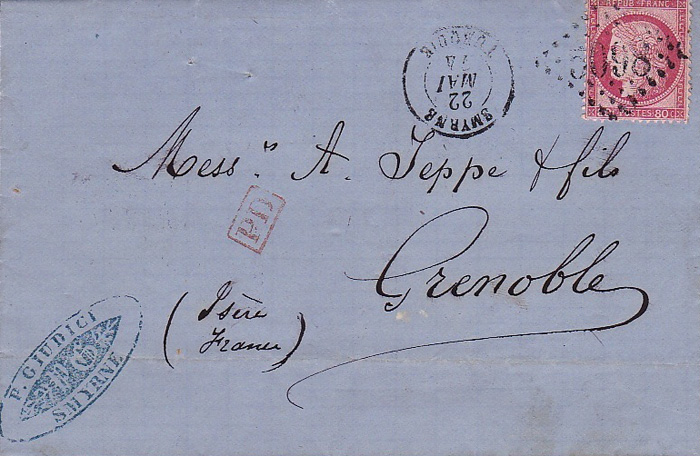 REPUB. FRANC.
5098
POSTES 80 C
SMYRNE
TURQUIE
22
MAI
74
Mess.rs A. Jeppe & fils
P.D.
Grenoble
(Isère
France)
P. GIUDICI
SMYRNE